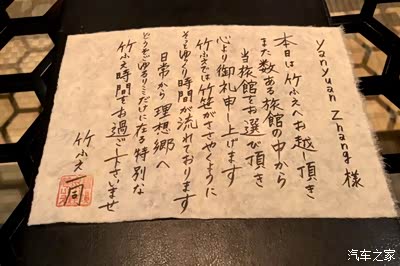 Yanyuan Zhang 様
本日は竹ふえへお越し頂き
また数ある旅館の中から
当旅館をお選び頂き
心より御礼申し上げます
竹ふえでは竹笹がささやくように
そっとゆっくり時間が流れております
日常から理想郷へ
どうぞごゆるりとここだけに在る特別な
竹ふえ時間をお過ごし下さいませ
竹ふえ一同
汽车之家